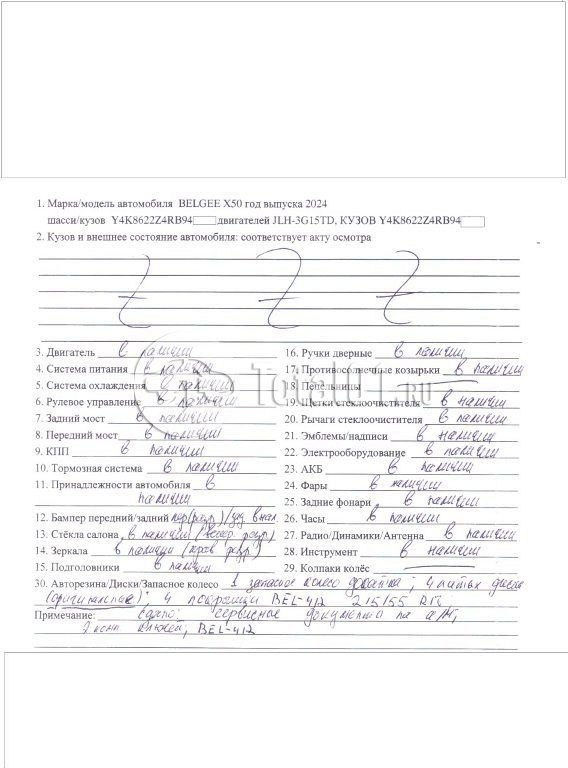 1. Марка/модель автомобиля BELGEE X50 год выпуска 2024
шасси/кузов Y4K8622Z4RB94 двигателей JLH-3G15TD, КУЗОВ Y4K8622Z4RB94
2. Кузов и внешнее состояние автомобиля: соответствует акту осмотра
3. Двигатель в наличии
4. Система питания в наличии
5. Система охлаждения в наличии
6. Рулевое управление в наличии
7. Задний мост в наличии
8. Передний мост в наличии
9. КПП в наличии
10. Тормозная система в наличии
11. Принадлежности автомобиля в
наличии
12. Бампер передний/задний
13. Стёкла салона в наличии
14. Зеркала в наличии
15. Подголовники в наличии
16. Ручки дверные в наличии
17. Противосолнечные козырьки в наличии
18. Пепельницы
19. Щетки стеклоочистителя в наличии
20. Рычаги стеклоочистителя в наличии
21. Эмблемы/надписи в наличии
22. Электрооборудование в наличии
23. АКБ в наличии
24. Фары в наличии
25. Задние фонари в наличии
26. Часы в наличии
27. Радио/Динамики/Антенна в наличии
28. Инструмент в наличии
29. Колпаки колёс
30. Авторезина/Диски/Запасное колесо 1 запасное колесо докатка; 4 литых диска
(оригинальные); 4 покрышки BEL-412 215/55
Примечание: сервисные документы на а/м,
BEL-412
Total01.RU